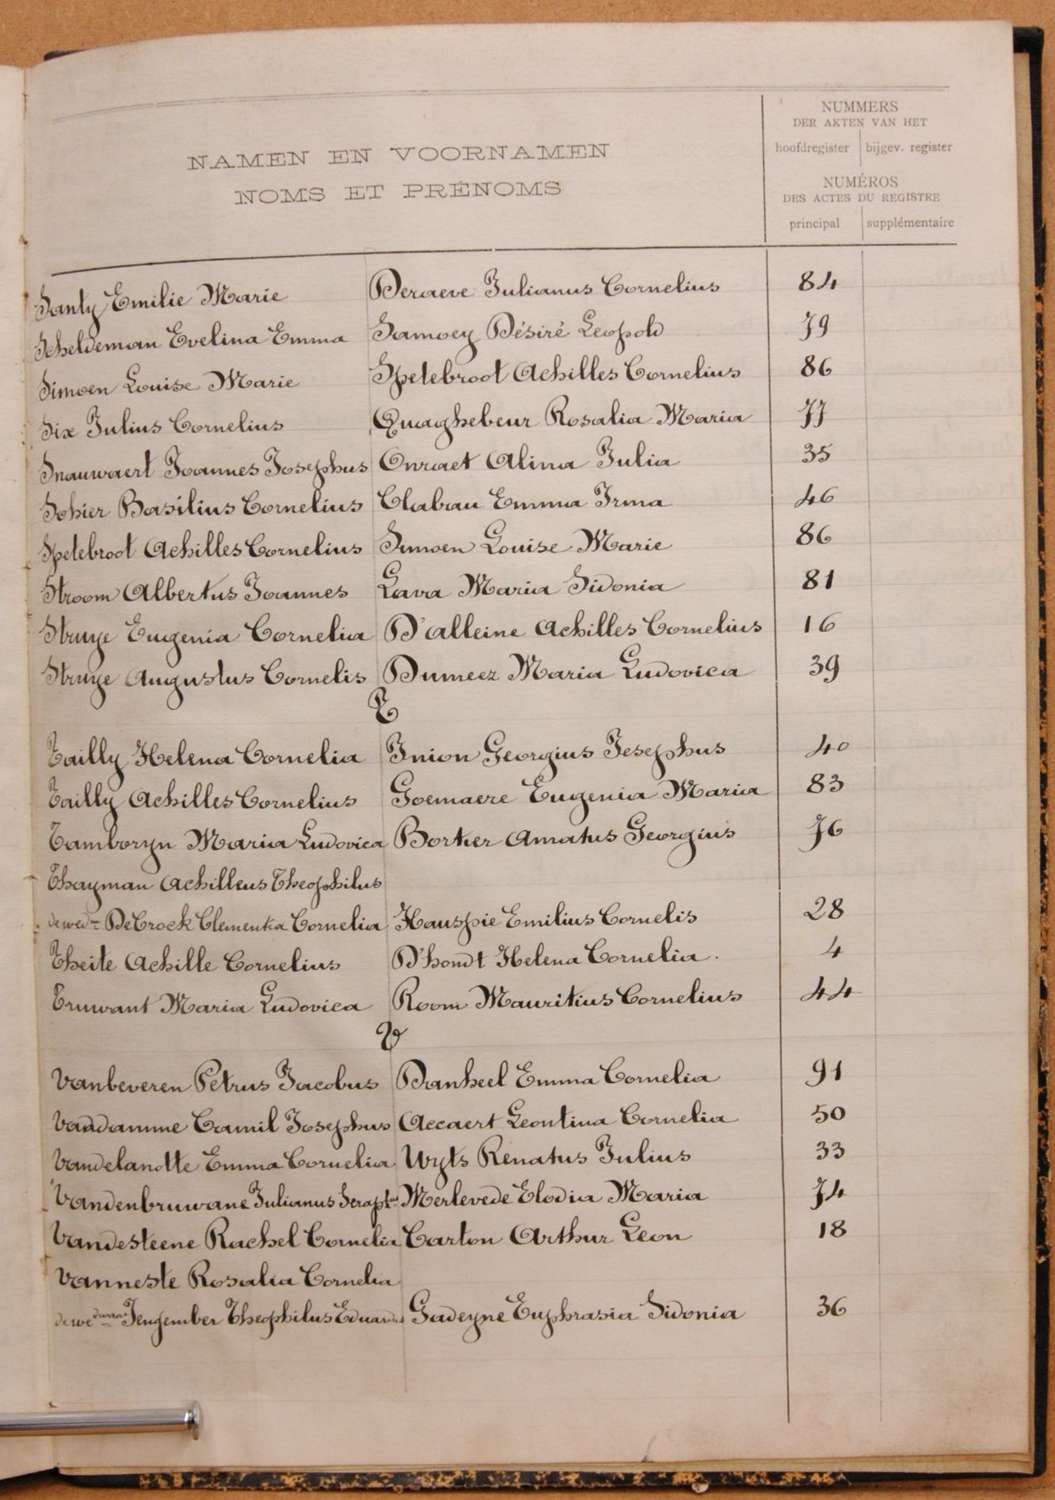 NAMEN EN VOORNAMEN
NOMS ET PRÉNOMS
NUMMERS
DER AKTEN VAN HET
hoofdregister bijgev. register
NUMÉROS
DES ACTES DU REGISTRE
principal supplémentaire
Santy Emilie Marie Deraeve Julianus Cornelius 84
Scheldeman Evelina Emma Samoey Désiré Leopold 79
Simoen Louise Marie Spetebroot Achilles Cornelius 86
Six Julius Cornelius Quaghebeur Rosalia Maria 77
Snauwaert Joannes Josephus Onraet Alina Julia 35
Sohier Basilius Cornelius Clabau Emma Irma 46
Spetebroot Achilles Cornelius Simoen Louise Marie 86
Stroom Albertus Joannes Lava Maria Sidonia 81
Struye Eugenia Cornelia D'Alleine Achilles Cornelius 16
Struye Augustus Cornelis Dumeez Maria Ludovica 39
T
Tailly Helena Cornelia Inion Georgius Josephus 40
Tailly Achilles Cornelius Goemaere Eugenia Maria 83
Tamboryn Maria Ludovica Bortier Amatus Georgius 76
Thayman Achilleus Theophilus
de wede DeCrock Clementia Cornelia Hauspie Emilius Cornelis 28
Theite Achille Cornelius D'hondt Helena Cornelia. 4
Truwant Maria Ludovica Room Mauritius Cornelius 44
V
Vanbeveren Petrus Jacobus Danheel Emma Cornelia 91
Vandamme Camil Josephus Accaert Leontina Cornelia 50
Vandelanotte Emma Cornelia Wyts Renatus Julius 33
Vandenbruwane Julianus Seraphs Merlevede Elodia Maria 74
Vandesteene Rachel Cornelia Carton Arthur Leon 18
Vanneste Rosalia Cornelia
Jengember Theophilus Eduardus Gadeyne Euphrasia Sidonia 36